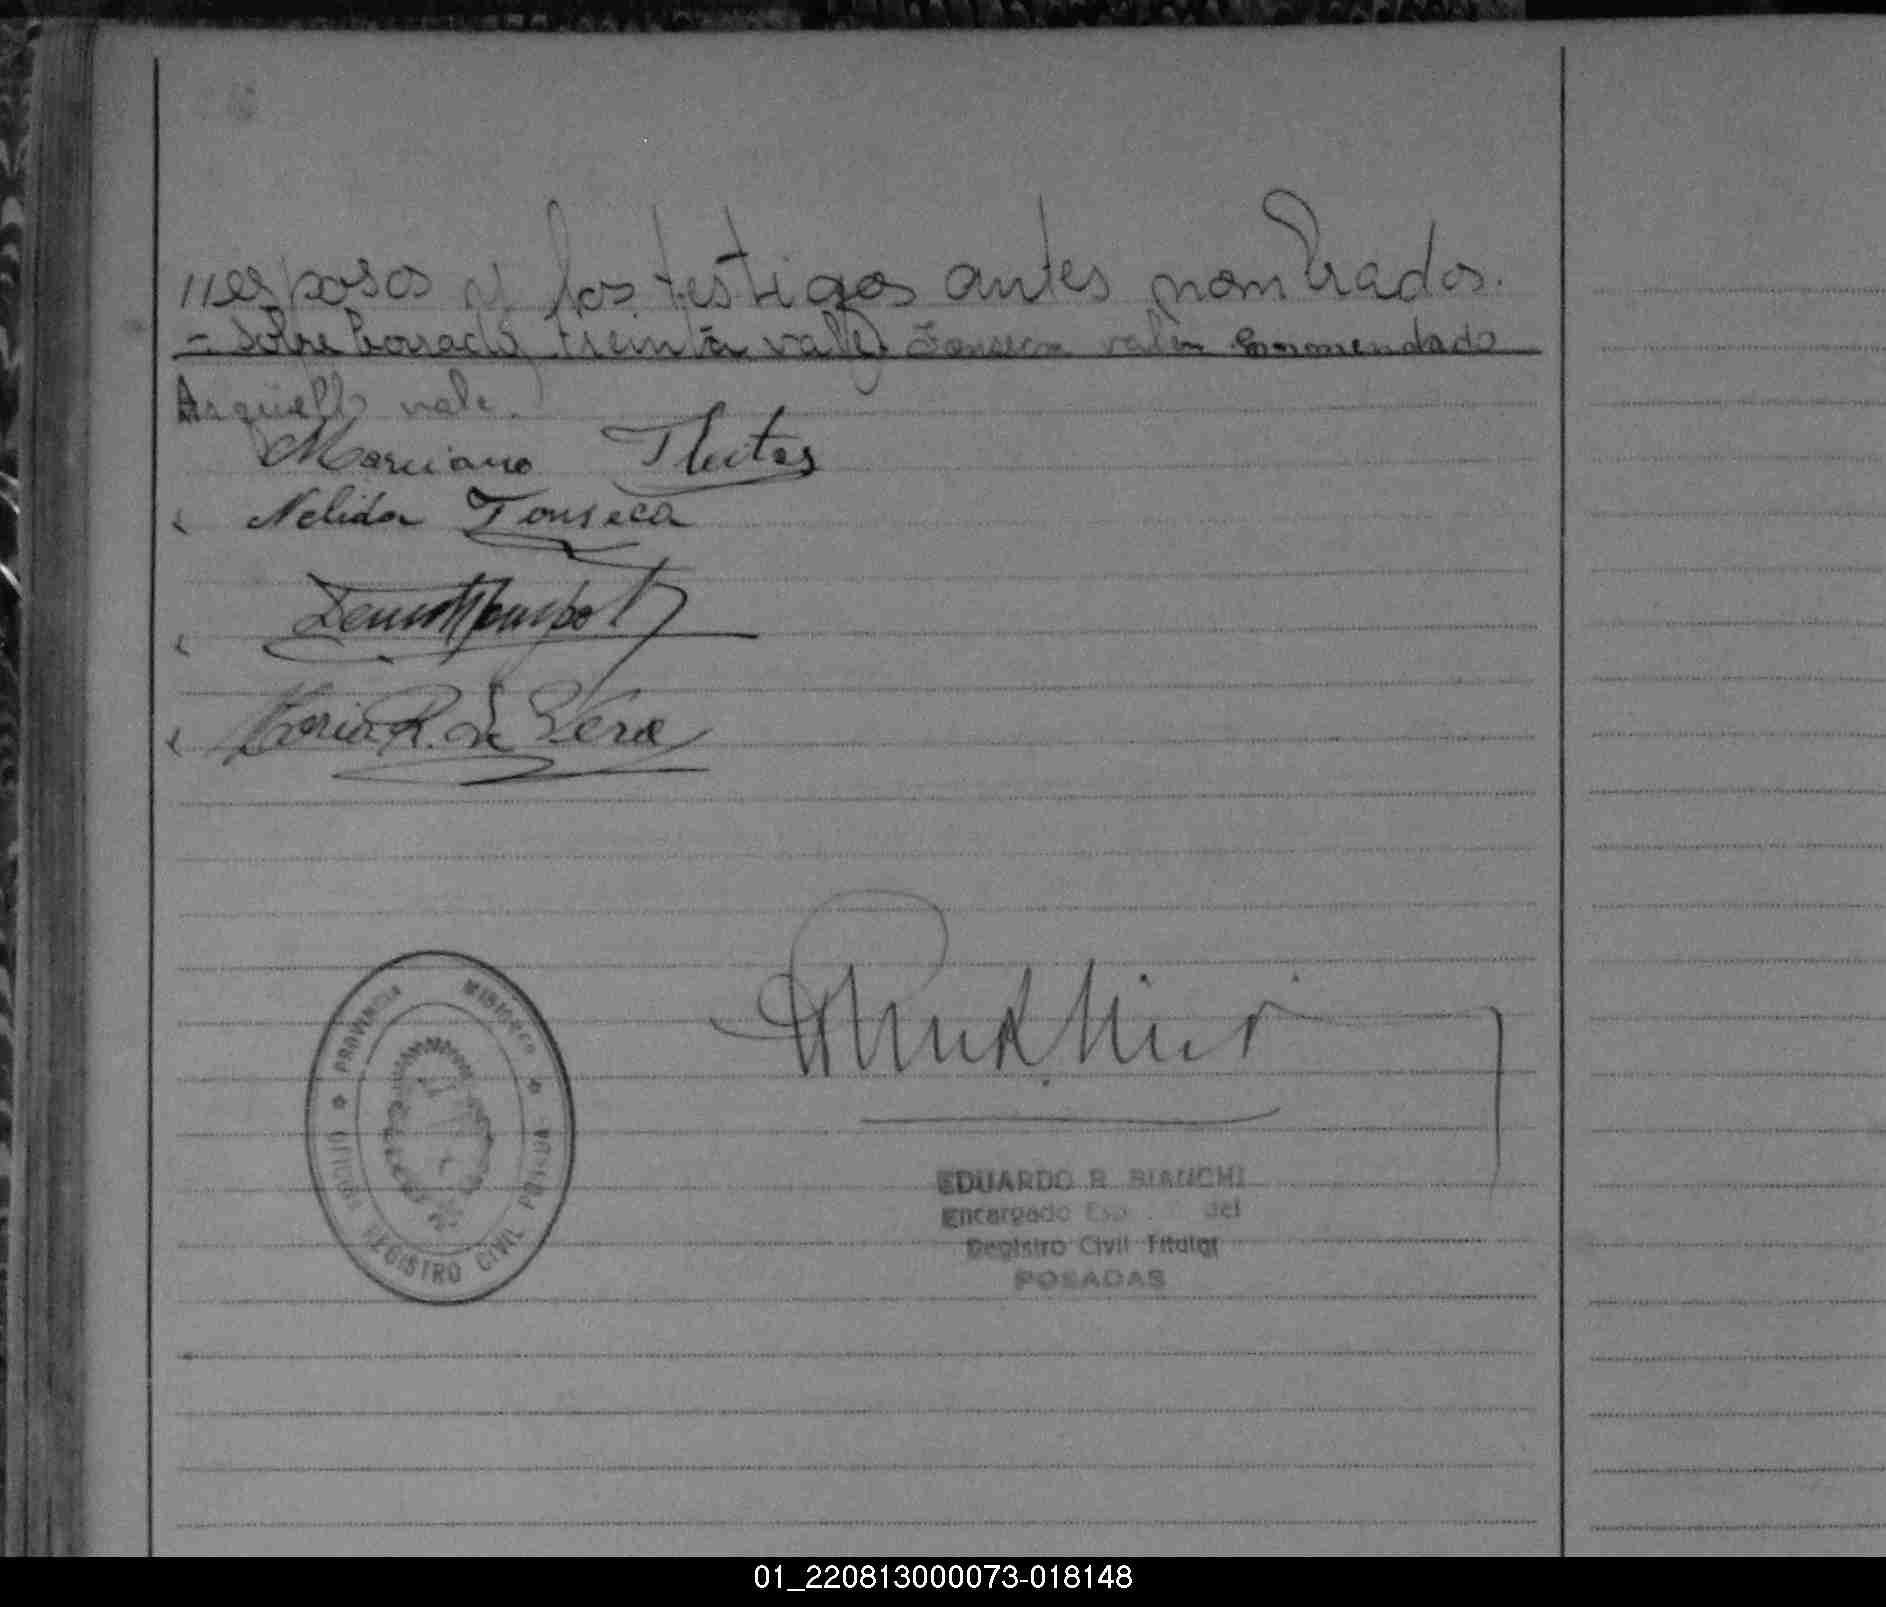 //esposos y los testigos antes nombrados.
- Sobre borrado treinta vale, Fonseca vale, Enmendado
Arguello vale.
Marciano Fleitas
Nelida Fonseca
Maria R. de Vera
PROVINCIA MISIONES
OFICINA REGISTRO CIVIL POSADAS
EDUARDO R. BIANCHI
Encargado del
Registro Civil Titular
POSADAS
01_220813000073-018148